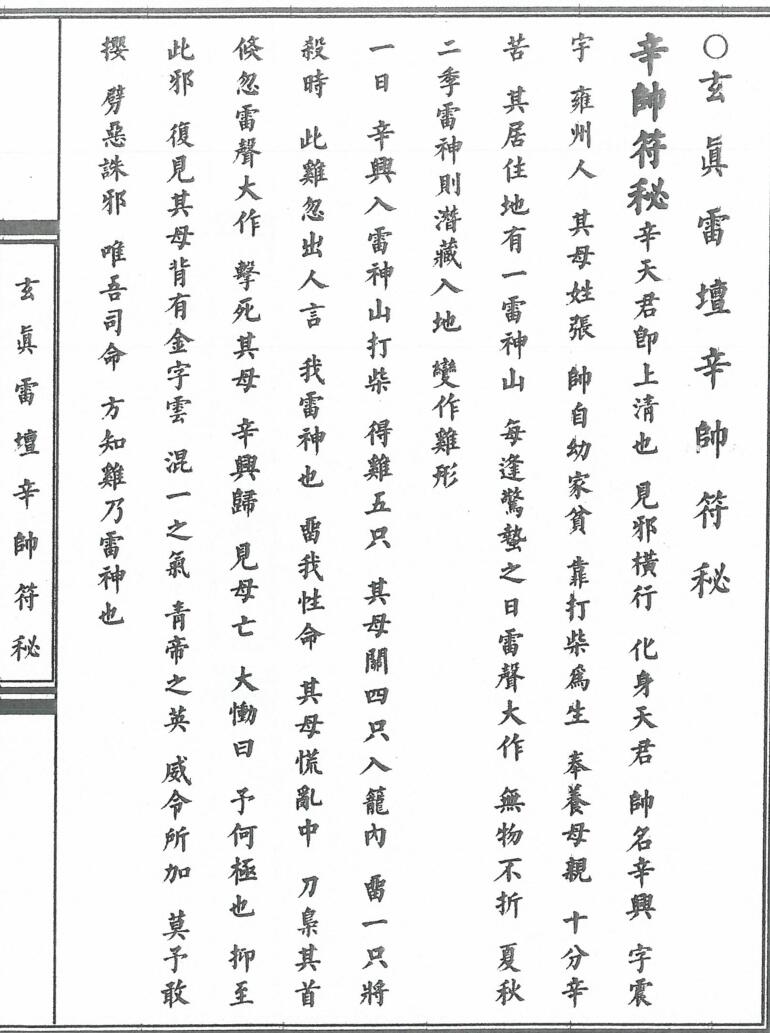 ○玄眞雷壇辛帥符秘
辛帥符秘 辛天君卽上淸也 見邪橫行 化身天君 帥名辛興 字震
宇 雍州人 其母姓張 帥自幼家貧 靠打柴爲生 奉養母親 十分辛
苦 其居住地有一雷神山 每逢驚蟄之日雷聲大作 無物不折 夏秋
二季雷神則潛藏入地 變作雞形
一日 辛興入雷神山打柴 得雞五只 其母關四只入籠內 畱一只將
殺時 此雞忽出人言 我雷神也 畱我性命 其母慌亂中 刀梟其首
倏忽雷聲大作 擊死其母 辛興歸 見母亡 大慟曰 予何極也 抑至
此邪 復見其母背有金字雲 混一之氣 靑帝之英 威令所加 莫予敢
攖 劈惡誅邪 唯吾司命 方知雞乃雷神也
玄眞雷壇辛帥符秘